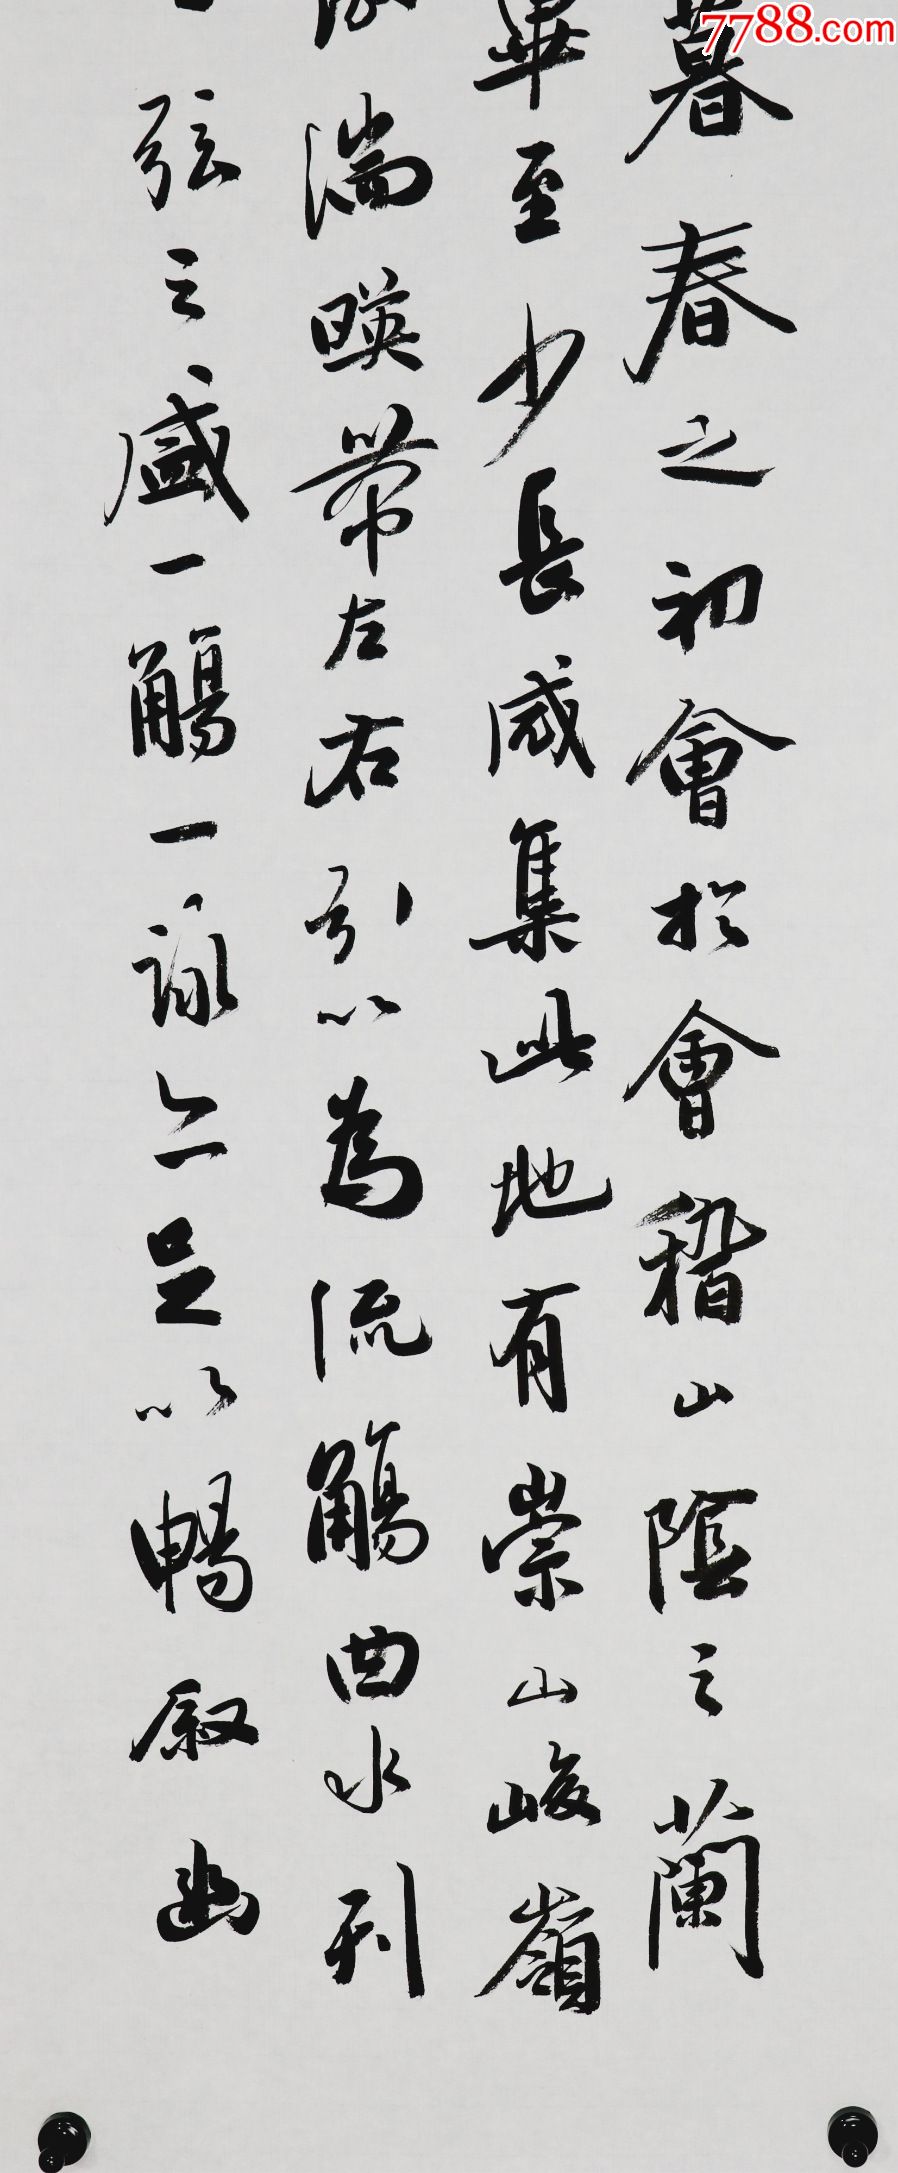 7788.com
暮春之初會於會稽山陰之蘭
畢至少長咸集此地有崇山峻嶺
湍暎帶左右引以為流觴曲水列
弦之盛一觴一詠亦足以暢叙幽